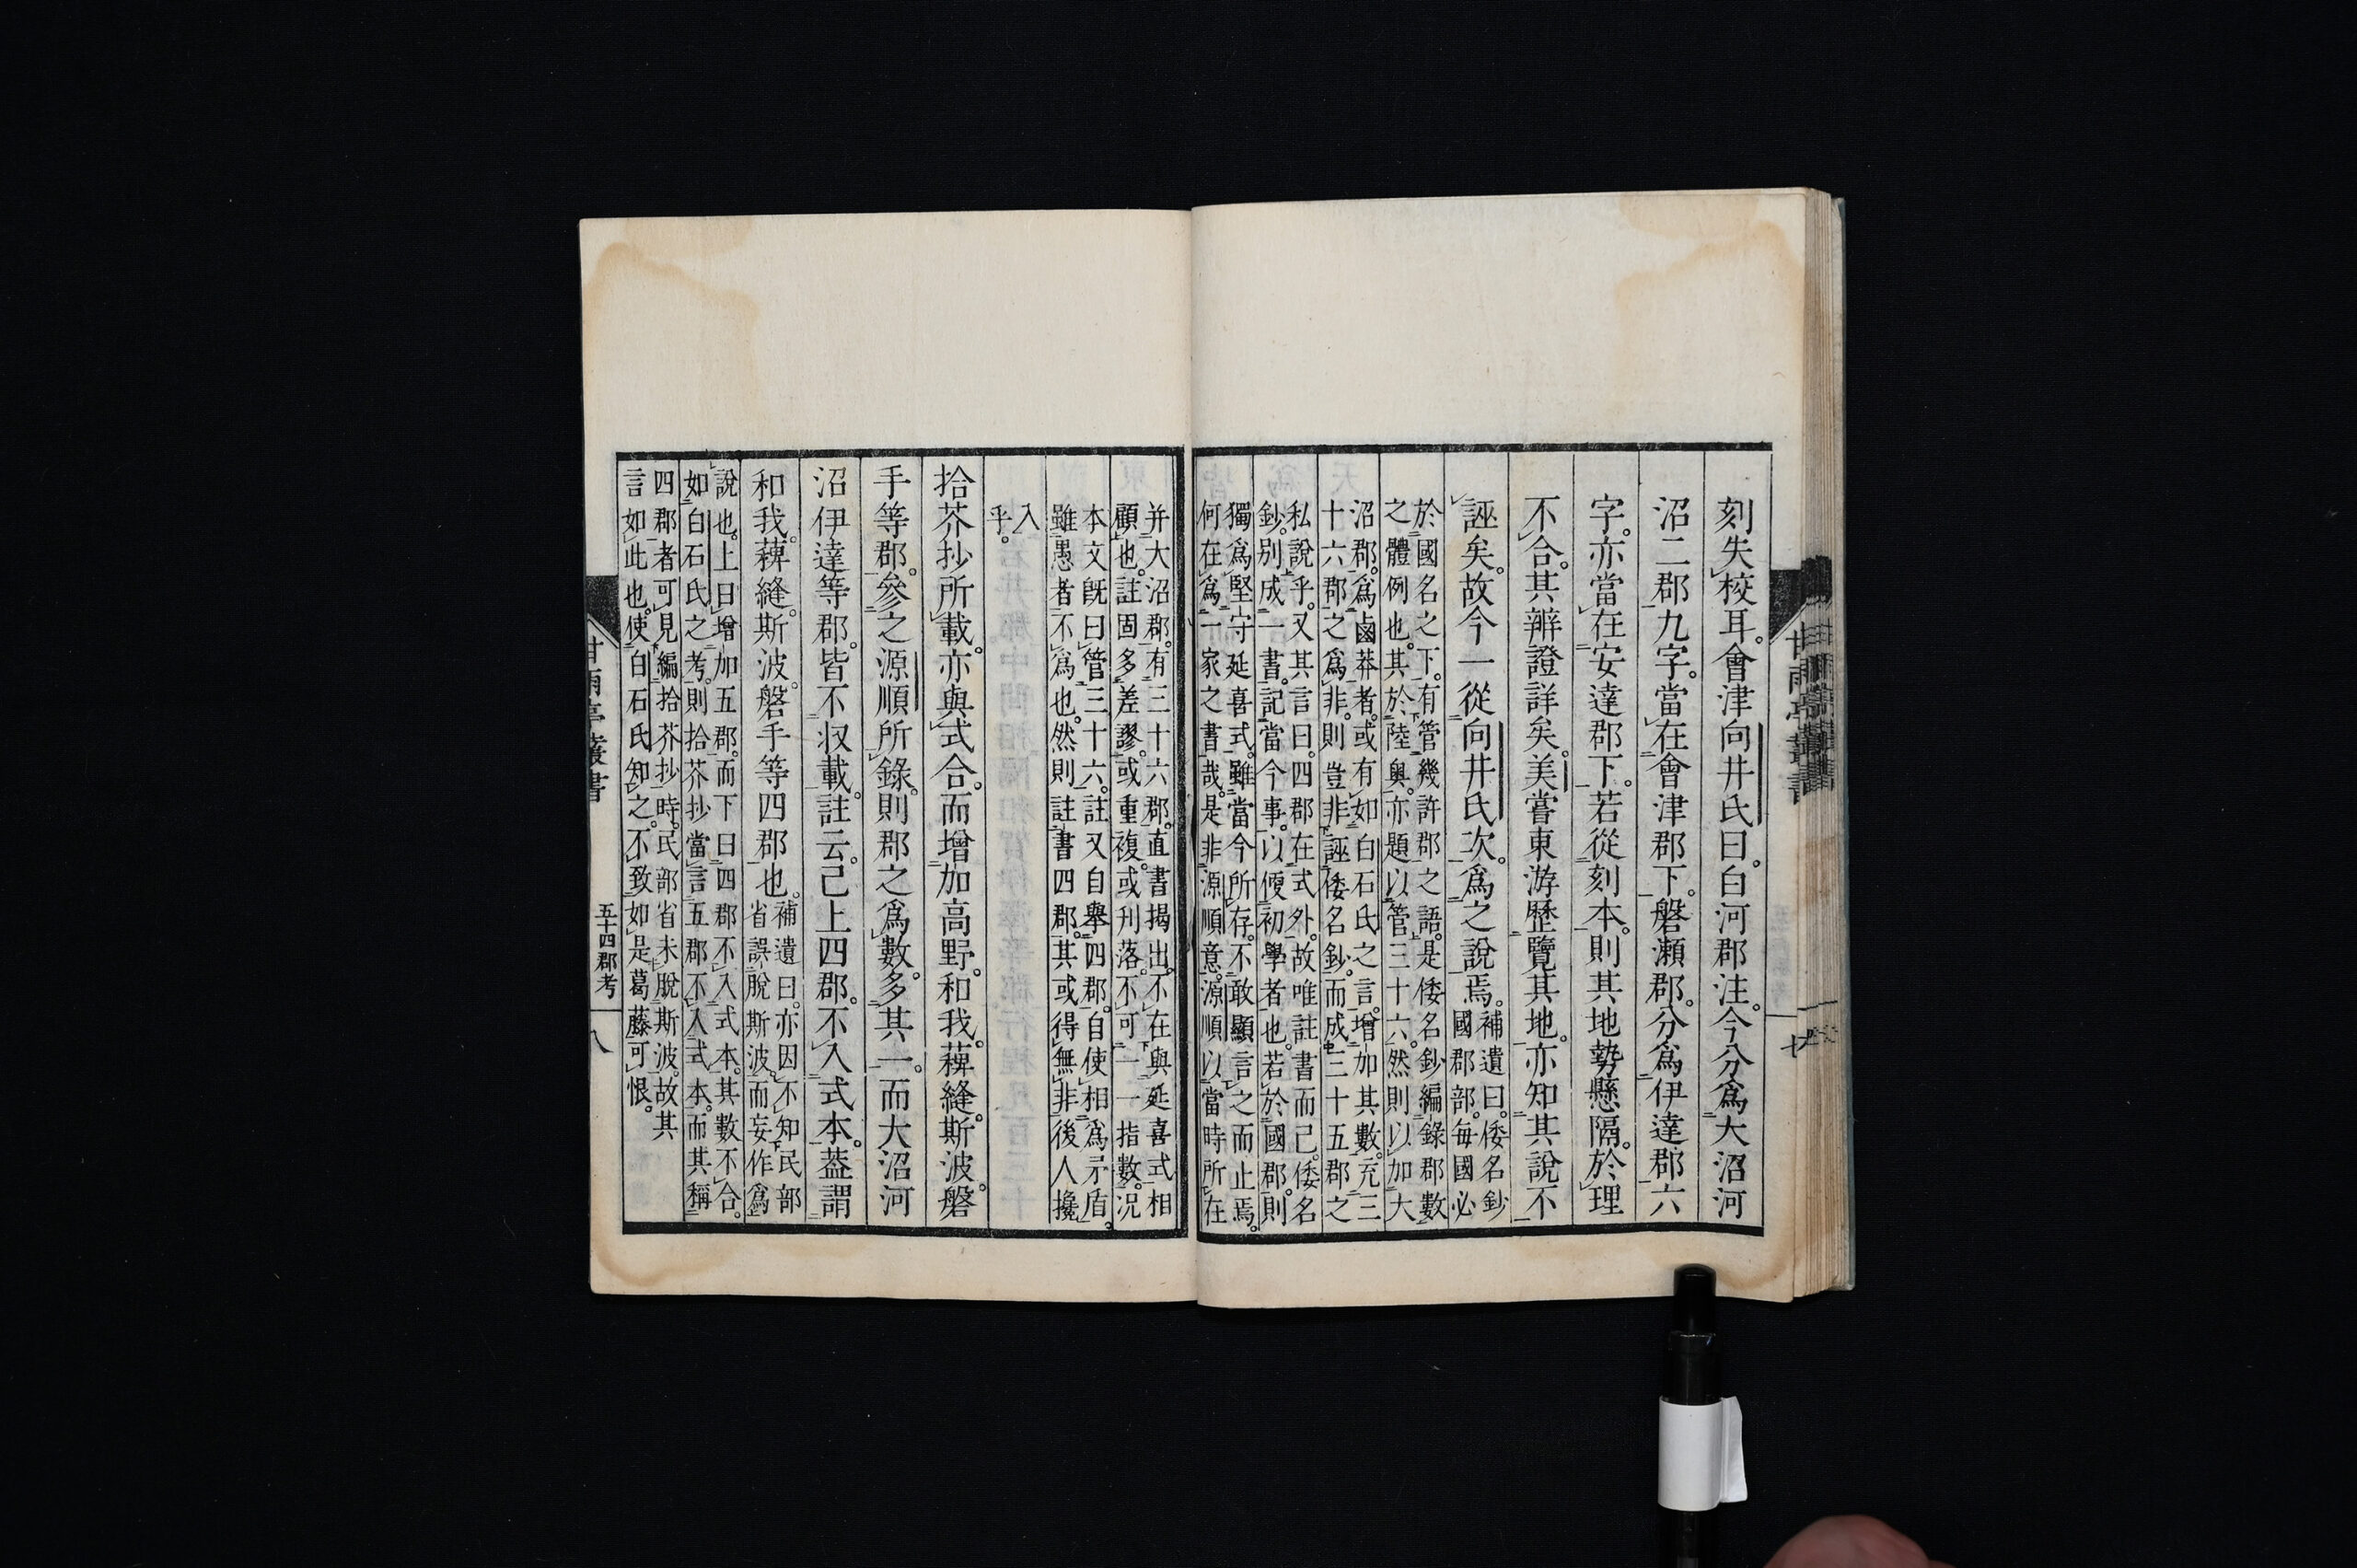 刻失校耳。會津向井氏曰。白河郡注。今分爲大沼河
沼二郡九字。當在會津郡下。磐瀬郡。分爲伊達郡六
字。亦當在安達郡下。若從刻本。則其地勢懸隔。於理
不合。其辨證詳矣。美嘗東游歷覽其地。亦知其說不
誣矣。故今一從向井氏次。爲之說焉。
補遺曰。倭名鈔
國郡部。每國必
於國名之下。有管幾許郡之語。是倭名鈔編錄郡數
之體例也。其於陸奧。亦題以管三十六。然則以加大
沼郡。爲鹵莽者。或有如白石氏之言。增加其數。充三
十六郡之爲非。則豈非誣倭名鈔。而成三十五郡之
私說乎。又其言曰。四郡在式外。故唯註書而已。倭名
鈔。別成一書。記當今事。以便初學者也。若於國郡。則
獨爲堅守延喜式。雖當今所存。不敢顯言之而止焉。
何在爲一家之書哉。是非源順意。源順以當時所在
并大沼郡。有三十六郡。直書揭出。不在與延喜式相
顧也。註固多差謬。或重複。或刋落。不可一一指數。况
本文既曰管三十六。註又自舉四郡。自使相爲矛盾。
雖愚者不爲也。然則註書四郡。其或得無非後人攙
入
乎。
拾芥抄所載。亦與式合。而增加高野。和我。薭縫。斯波。磐
手等郡。參之源順所錄。則郡之爲數多。其一。而大沼河
沼伊達等郡。皆不収載。註云。己上四郡。不入式本。葢謂
和我。薭縫。斯波。磐手等四郡也。
補遺曰。亦因不知民部
省誤脫斯波。而妄作爲
說也。上曰增加五郡。而下曰四郡不入式本。其數不合。
如白石氏之考。則拾芥抄當言五郡不入式本。而其稱
四郡者可見編拾芥抄時。民部省未脫斯波。故其
言如此也。使白石氏知之。不致如是葛藤。可恨。
甘雨亭叢書
五十四郡考
八
甘雨亭叢書
七